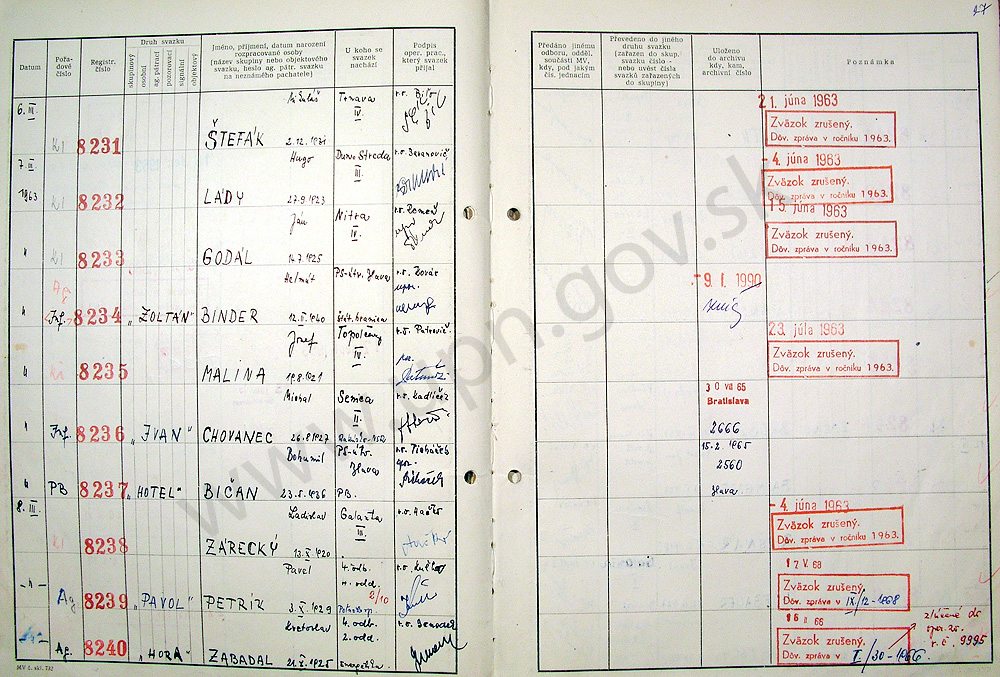 27
Datum
Pořadové číslo
Registr. číslo
Druh svazku
skupinový
osobní
ag. pátrací
pozorovací
signální
objektový
Jméno, příjmení, datum narození
rozpracované osoby
(název skupiny nebo objektového
svazku, heslo ag. pátr. svazku
na neznámého pachatele)
U koho se
svazek
nachází
Podpis
oper. prac.,
který svazek
přijal
Předáno jinému
odboru, odděl.
součásti MV,
kdy, pod jakým
čís. jednacím
Převedeno do jiného
druhu svazku
(zařazen do skup.
svazku číslo -
nebo uvést čísla
svazků zařazených
do skupiny)
Uloženo
do archivu
kdy, kam,
archivní číslo
Poznámka
6. III. 8231 ŠTEFÁK 2.12.1931 Trnava IV.
21. júna 1963
Zväzok zrušený.
Dôv. zpráva v ročníku 1963.
7. III. 1963 8232 Hugo LÁDY 27.9.1923 Dun. Streda III.
-4. júna 1963
Zväzok zrušený.
Dôv. zpráva v ročníku 1963.
" 8233 Ján GODÁL 14.7.1925 Nitra IV.
15. júna 1963
Zväzok zrušený.
Dôv. zpráva v ročníku 1963.
" Ag 8234 "ZOLTÁN" Helmút BINDER 12.II.1940
-9. I. 1990
" 8235 Jozef MALINA 19.8.1921 Topolčany IV.
23. júla 1963
Zväzok zrušený.
Dôv. zpráva v ročníku 1963.
" Inf. 8236 "IVAN" Michal CHOVANEC 26.8.1927 Senica II. r.s. Kadlíček
30 VII 65
Bratislava
2666
" PB 8237 "HOTEL" Bohumil BIČAN 23.5.1936 PB.
15.2.1965
2560
Ilava
8. III. 8238 Ladislav ZÁRECKÝ 13.X.1920 Galanta III.
-4. júna 1963
Zväzok zrušený.
Dôv. zpráva v ročníku 1963.
-"- Ag 8239 "PAVOL" Pavel PETRÍK 3.X.1929 4. odb. 2/10
17 V. 68
Zväzok zrušený
Dôv. zpráva v IX/12-1968
-"- Ag. 8240 "HORA" Kvetoslav ZABADAL 21.X.1925 4. odb. 2. odd.
16 II 66
Zväzok zrušený
Dôv. zpráva v I./30-1966.
r. č. 9395
MV č. skl. 732
www.upn.gov.sk